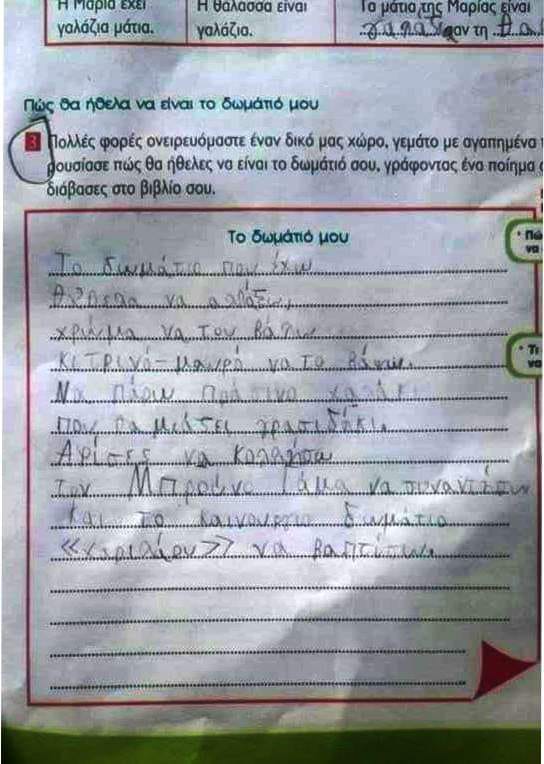 Η Μαρία έχει
γαλάζια μάτια.
Η θάλασσα είναι
γαλάζια.
Τα μάτια της Μαρίας είναι
σαν τη θα
Πώς θα ήθελα να είναι το δωμάτιό μου
3 Πολλές φορές ονειρευόμαστε έναν δικό μας χώρο, γεμάτο με αγαπημένα
ρουσίασε πώς θα ήθελες να είναι το δωμάτιό σου, γράφοντας ένα ποίημα
διάβασες στο βιβλίο σου.
Το δωμάτιό μου
• Πώ
να
• Τι
να
Το δωμάτιο που έχω
να αλλάξω,
χρώμα να του βάλω
κιτρινό-μαυρό να το βάψω.
Να πάρω πράσινο χαλάκι
που θα μιάζει γρασιδάκι.
Αφίσες να κολλήσω
τον Μπρούνο Γάμα να συναντήσω
και το καινουργιο δωμάτιο
να βαπτίσω.